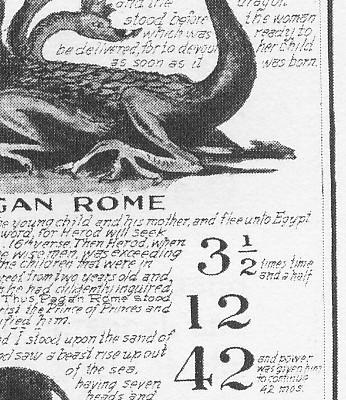 and the dragon
stood before the woman
which was ready to
be delivered, for to devour her child
as soon as it was born.
GAN ROME
young child and his mother, and flee unto Egypt
word, for Herod will seek
16th verse. Then Herod, when
wise men, was exceeding
the children that were in
from two years old and
he had diligently inquired
Thus Pagan Rome stood
the Prince of Princes and
him.
3 1/2 times time
and a half
12
I stood upon the sand of
saw a beast rise up out
of the sea,
having seven
heads and
42 and power
was given him
to continue
42 mos.